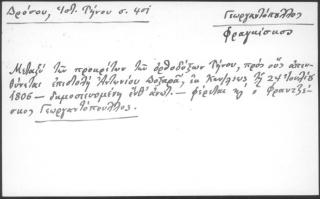 Δρόσου, Ἱστ. Τήνου σ. 401
Γεωργαντόπουλλος
Φραγκίσκος
Μεταξὺ τῶν προκρίτων τῶν ὀρθοδόξων Τήνου, πρὸς οὓς ἀπευ-
θύνεται ἐπιστολὴ Ἀντωνίου τῇ 24 Ἰουλίου
1806 — δημοσιευομένη ἔνθ' ἀνωτ. — φέρεται κʹ ὁ Φραντζέ-
σκος Γεωργαντόπουλλος.